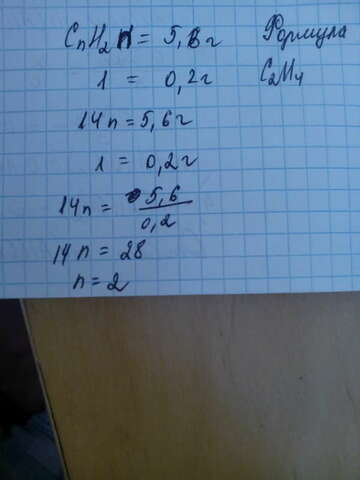 CnH2n = 5,6г Формула
1 = 0,2г C2H4
14n = 5,6г
1 = 0,2г
14n = 5,6
0,2
14n = 28
n = 2